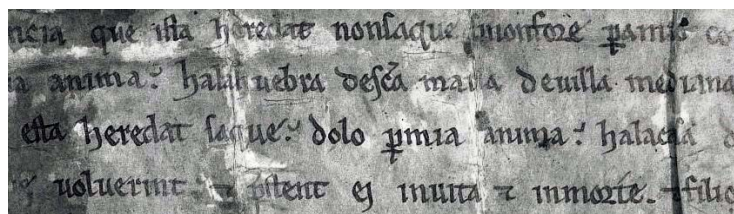 ncia que ista heredat nonsaque monfore ꝑamis co
a anima. halahuebra descā maria deuilla mediana
esta heredat saque. dolo ꝑmia anima. halacasa d
uoluerint ⁊ p̄stent ej inuita ⁊ inmorte. ⁊ filio